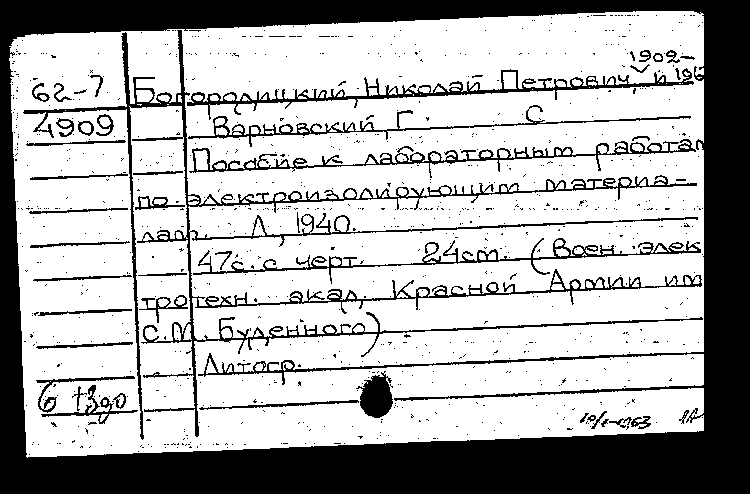 1902-
62-7 Богородицкий, Николай Петрович, и
4909 Варновский, Г. С
Пособие к лабораторным работам
по электроизолирующим материа-
лам. Л., 1940.
47с. с черт. 24см. (Воен. элек
тротехн. акад. Красной Армии им
С.М. Буденного)
Литогр.
6